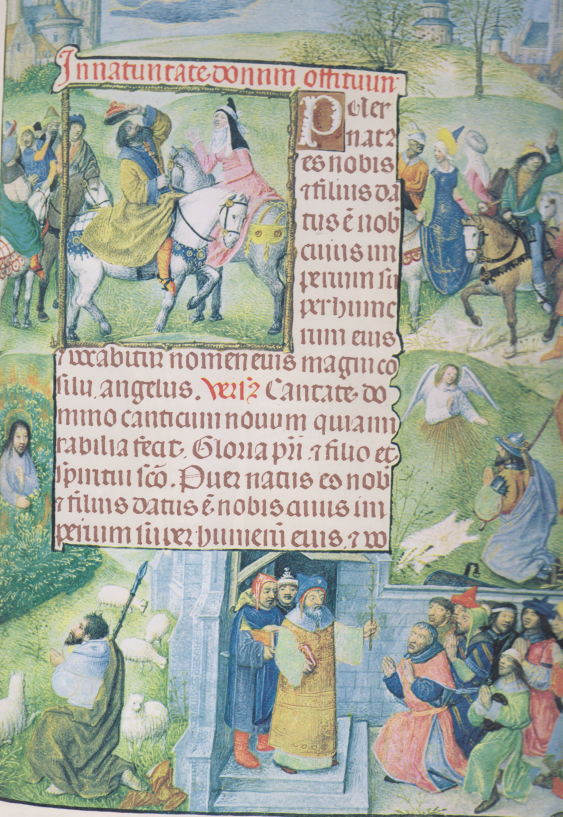 In natiuitate domini offitium
Puer
natz
es nobis
⁊ filius da
tus ē nob
cuius im
perium su
per hume
rum eius
⁊ vocabitur nomen eius magni co
silii, angelus. Versz Cantate do
mino canticum nouum quia mi
rabilia fecit. Gloria pri ⁊ filio et
spiritui sco. Puer natus es nob
⁊ filius datus ē nobis cuius im
perium super humerū eius, ⁊ vo